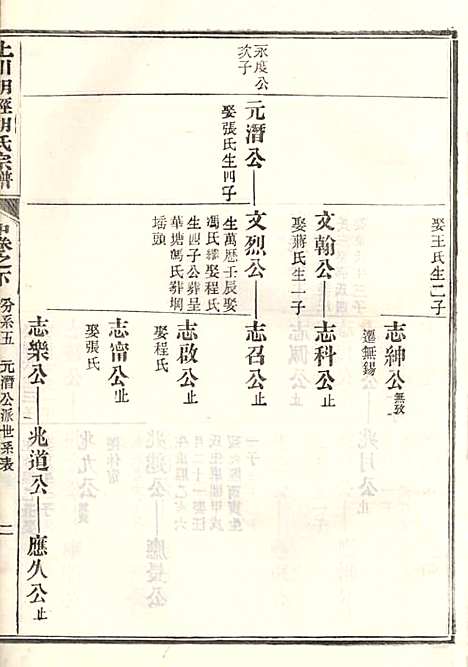 上川明經胡氏宗譜
中卷之下
分系五
元潛公派世系表
二
永度公
次子
元潛公
娶張氏生四子
娶王氏生二子
文翰公
娶蔣氏生一子
文烈公
生萬歷壬辰娶
馮氏繼娶程氏
生四子公葬呈
華塘馮氏葬堨
塝頭
志紳公 無攷
遷無錫
志科公 止
志召公 止
志啟公 止
娶程氏
志甯公 止
娶張氏
志樂公
兆道公
應久公 止